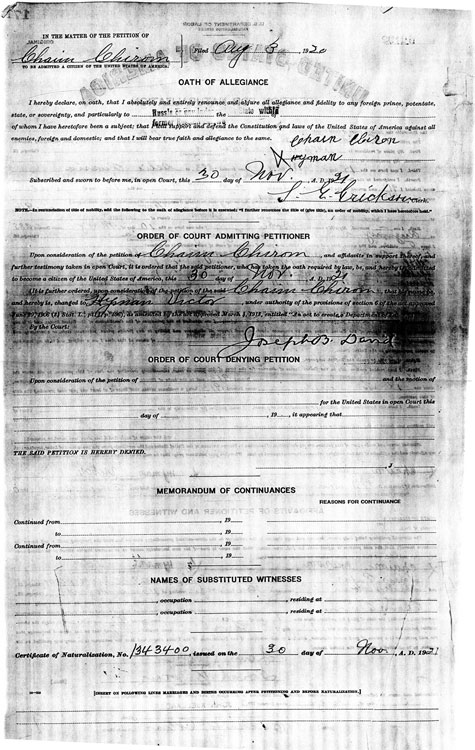 IN THE MATTER OF THE PETITION OF
Chaim Chirom
Filed Aug 3, 1920
TO BE ADMITTED A CITIZEN OF THE UNITED STATES OF AMERICA.
OATH OF ALLEGIANCE
I hereby declare, on oath, that I absolutely and entirely renounce and abjure all allegiance and fidelity to any foreign prince, potentate,
state, or sovereignty, and particularly to the
of whom I have heretofore been a subject; that I will support and defend the Constitution and laws of the United States of America against all
enemies, foreign and domestic; and that I will bear true faith and allegiance to the same.
Subscribed and sworn to before me, in open Court, this 30 day of Nov. A. D. 1921
S. E. Erickson, Clerk.
ORDER OF COURT ADMITTING PETITIONER
Upon consideration of the petition of Chaim Chirom, and affidavits in support thereof, and
further testimony taken in open Court, it is ordered that the said petitioner, who has taken the oath required by law, be, and hereby is, admitted
to become a citizen of the United States of America, this 30 day of Nov. A. D. 1921
It is further ordered, upon consideration of the petition of the said Chaim Chirom, that
and hereby is, changed to Hyman Victor, under authority of the provisions of section 6 of the
By the Court:
Joseph B. David
ORDER OF COURT DENYING PETITION
Upon consideration of the petition of and the motion of
for the United States in open Court this
day of , 19 , it appearing that
THE SAID PETITION IS HEREBY DENIED.
MEMORANDUM OF CONTINUANCES
REASONS FOR CONTINUANCE
Continued from , 19
to , 19
Continued from , 19
to , 19
NAMES OF SUBSTITUTED WITNESSES
, occupation , residing at
, occupation , residing at
Certificate of Naturalization, No. 1343400, issued on the 30 day of Nov, A. D. 1921
[INSERT ON FOLLOWING LINES MARRIAGES AND BIRTHS OCCURRING AFTER PETITIONING AND BEFORE NATURALIZATION.]